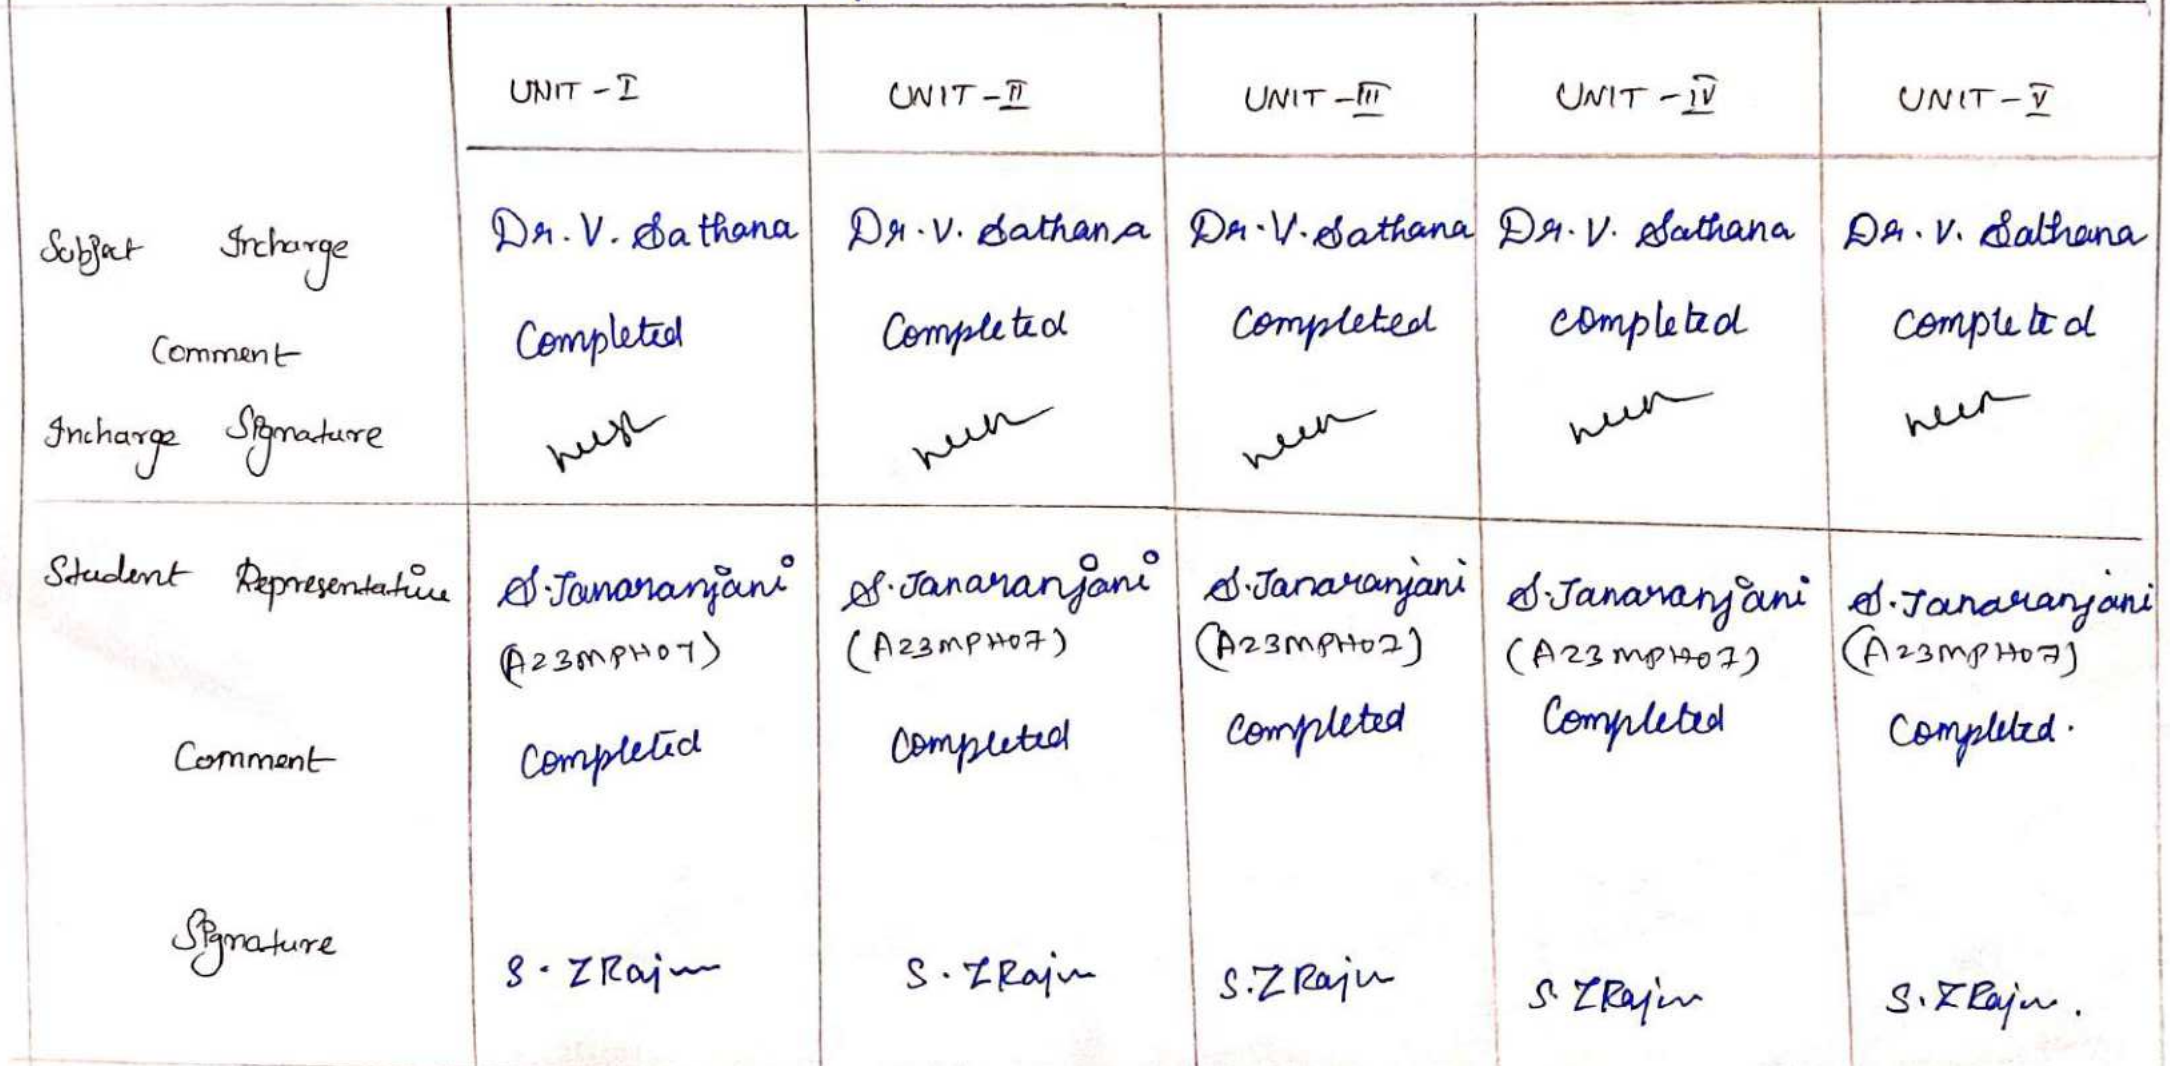 UNIT - I UNIT - II UNIT - III UNIT - IV UNIT - V
Subject Incharge Dr. V. Sathana Dr. V. Sathana Dr. V. Sathana Dr. V. Sathana Dr. V. Sathana
Comment Completed Completed Completed Completed Completed
Incharge Signature
Student Representative S. Janaranjani S. Janaranjani S. Janaranjani S. Janaranjani S. Janaranjani
(A23MPH07) (A23MPH07) (A23MPH07) (A23MPH07) (A23MPH07)
Comment Completed Completed Completed Completed Completed.
Signature